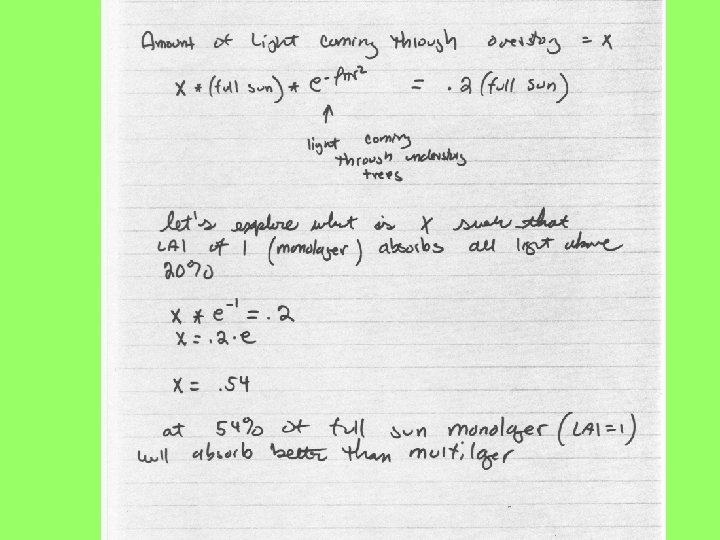 Amount of Light coming through overstory = X
X * (full sun) * e^-ρπr² = .2 (full sun)
↑
light coming
through understory
trees
let's explore what is X such that
LAI of 1 (monolayer) absorbs all light above
20%
X * e^-1 = .2
X = .2 · e
X = .54
at 54% of full sun monolayer (LAI=1)
will absorb better than multilayer